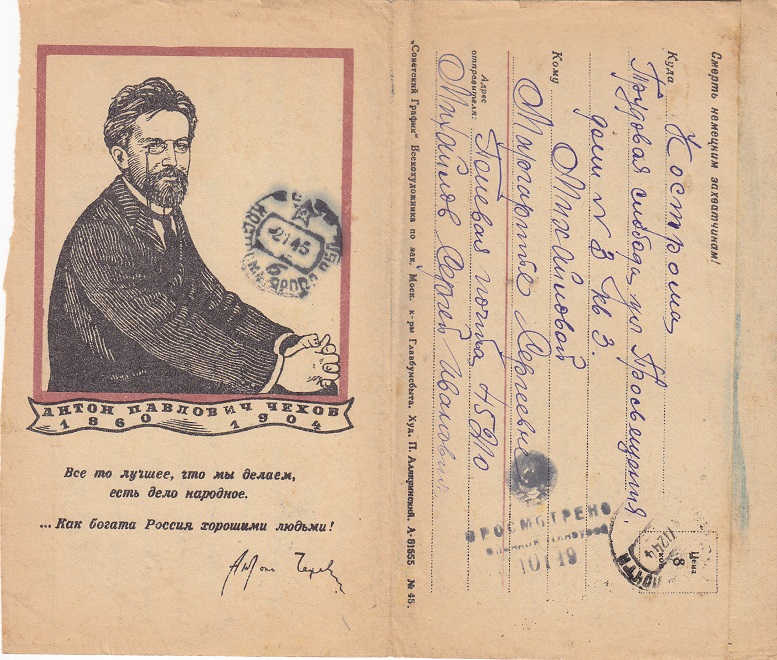 АНТОН ПАВЛОВИЧ ЧЕХОВ
1860 1904
Все то лучшее, что мы делаем,
есть дело народное.
... Как богата Россия хорошими людьми!
Антон Чехов
2 1 45
Смерть немецким захватчикам!
Куда Кострома
Трудовая слобода, ул Просвещения.
дом N 3 кв 3.
Кому Михайловой
Маргарите Сергеевне
Адрес
отправителя: Полевая почта
Михайлов Сергей Иванович.
„Советский График" Всекохудожника по зак. Моск. к-ры Главбумсбыта. Худ. П. Алякринский. А-81555 № 45.
ПРОСМОТРЕНО
10119
Цена
8
коп.
ПОЧТА